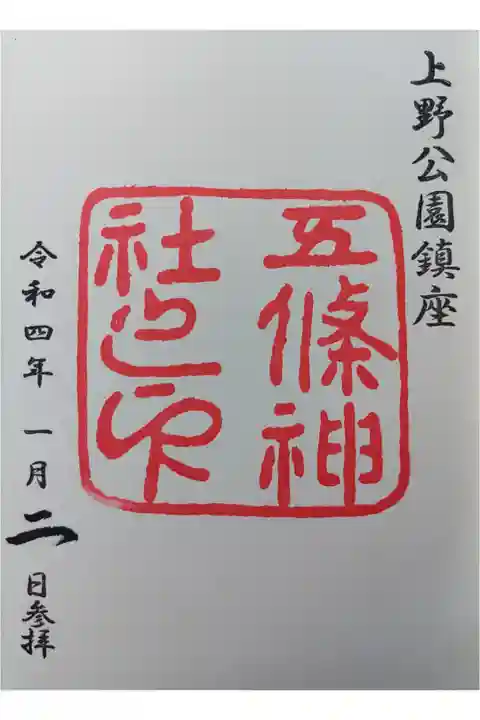 上野公園鎮座
五條神
社之印
令和四年一月二日参拝